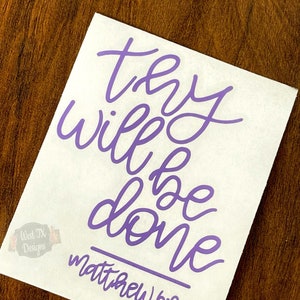 thy
will be
done
matthew
West TN
Designs